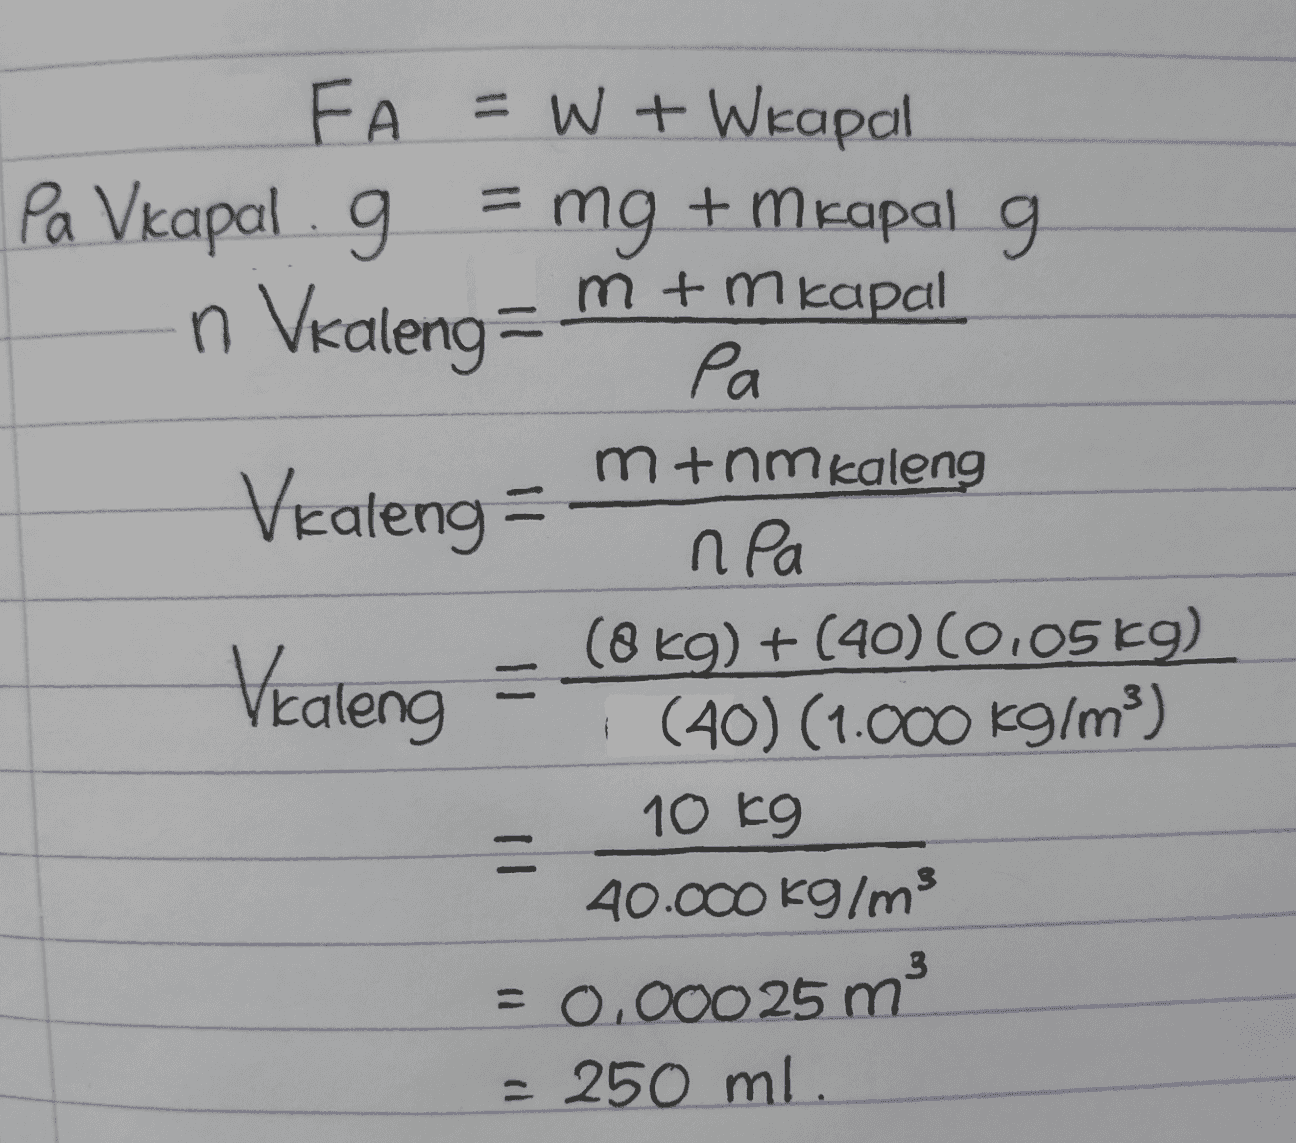 FA = W + Wkapal
ρa Vkapal . g = mg + mkapal g
n Vkaleng = m + mkapal / ρa
Vkaleng = m + nmkaleng / n ρa
Vkaleng = (8 kg) + (40) (0,05 kg) / (40) (1.000 kg/m³)
= 10 kg / 40.000 kg/m³
= 0,00025 m³
= 250 ml.